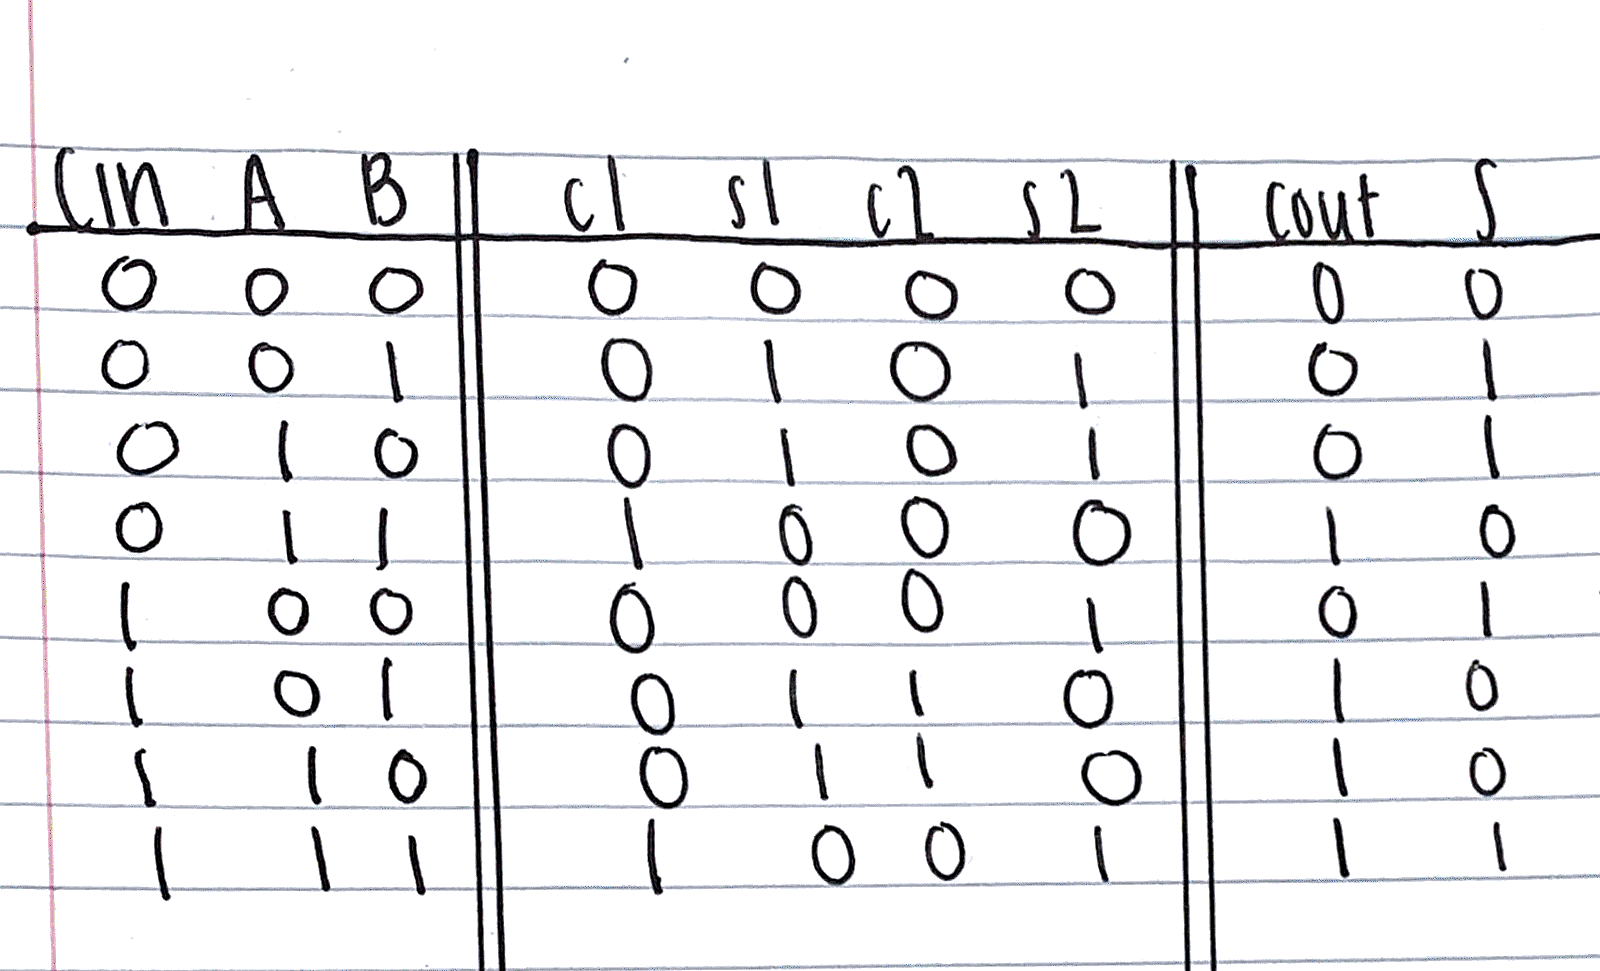 Cin A B c1 s1 c2 s2 cout S
0 0 0 0 0 0 0 0 0
0 0 1 0 1 0 1 0 1
0 1 0 0 1 0 1 0 1
0 1 1 1 0 0 0 1 0
1 0 0 0 0 0 1 0 1
1 0 1 0 1 1 0 1 0
1 1 0 0 1 1 0 1 0
1 1 1 1 0 0 1 1 1